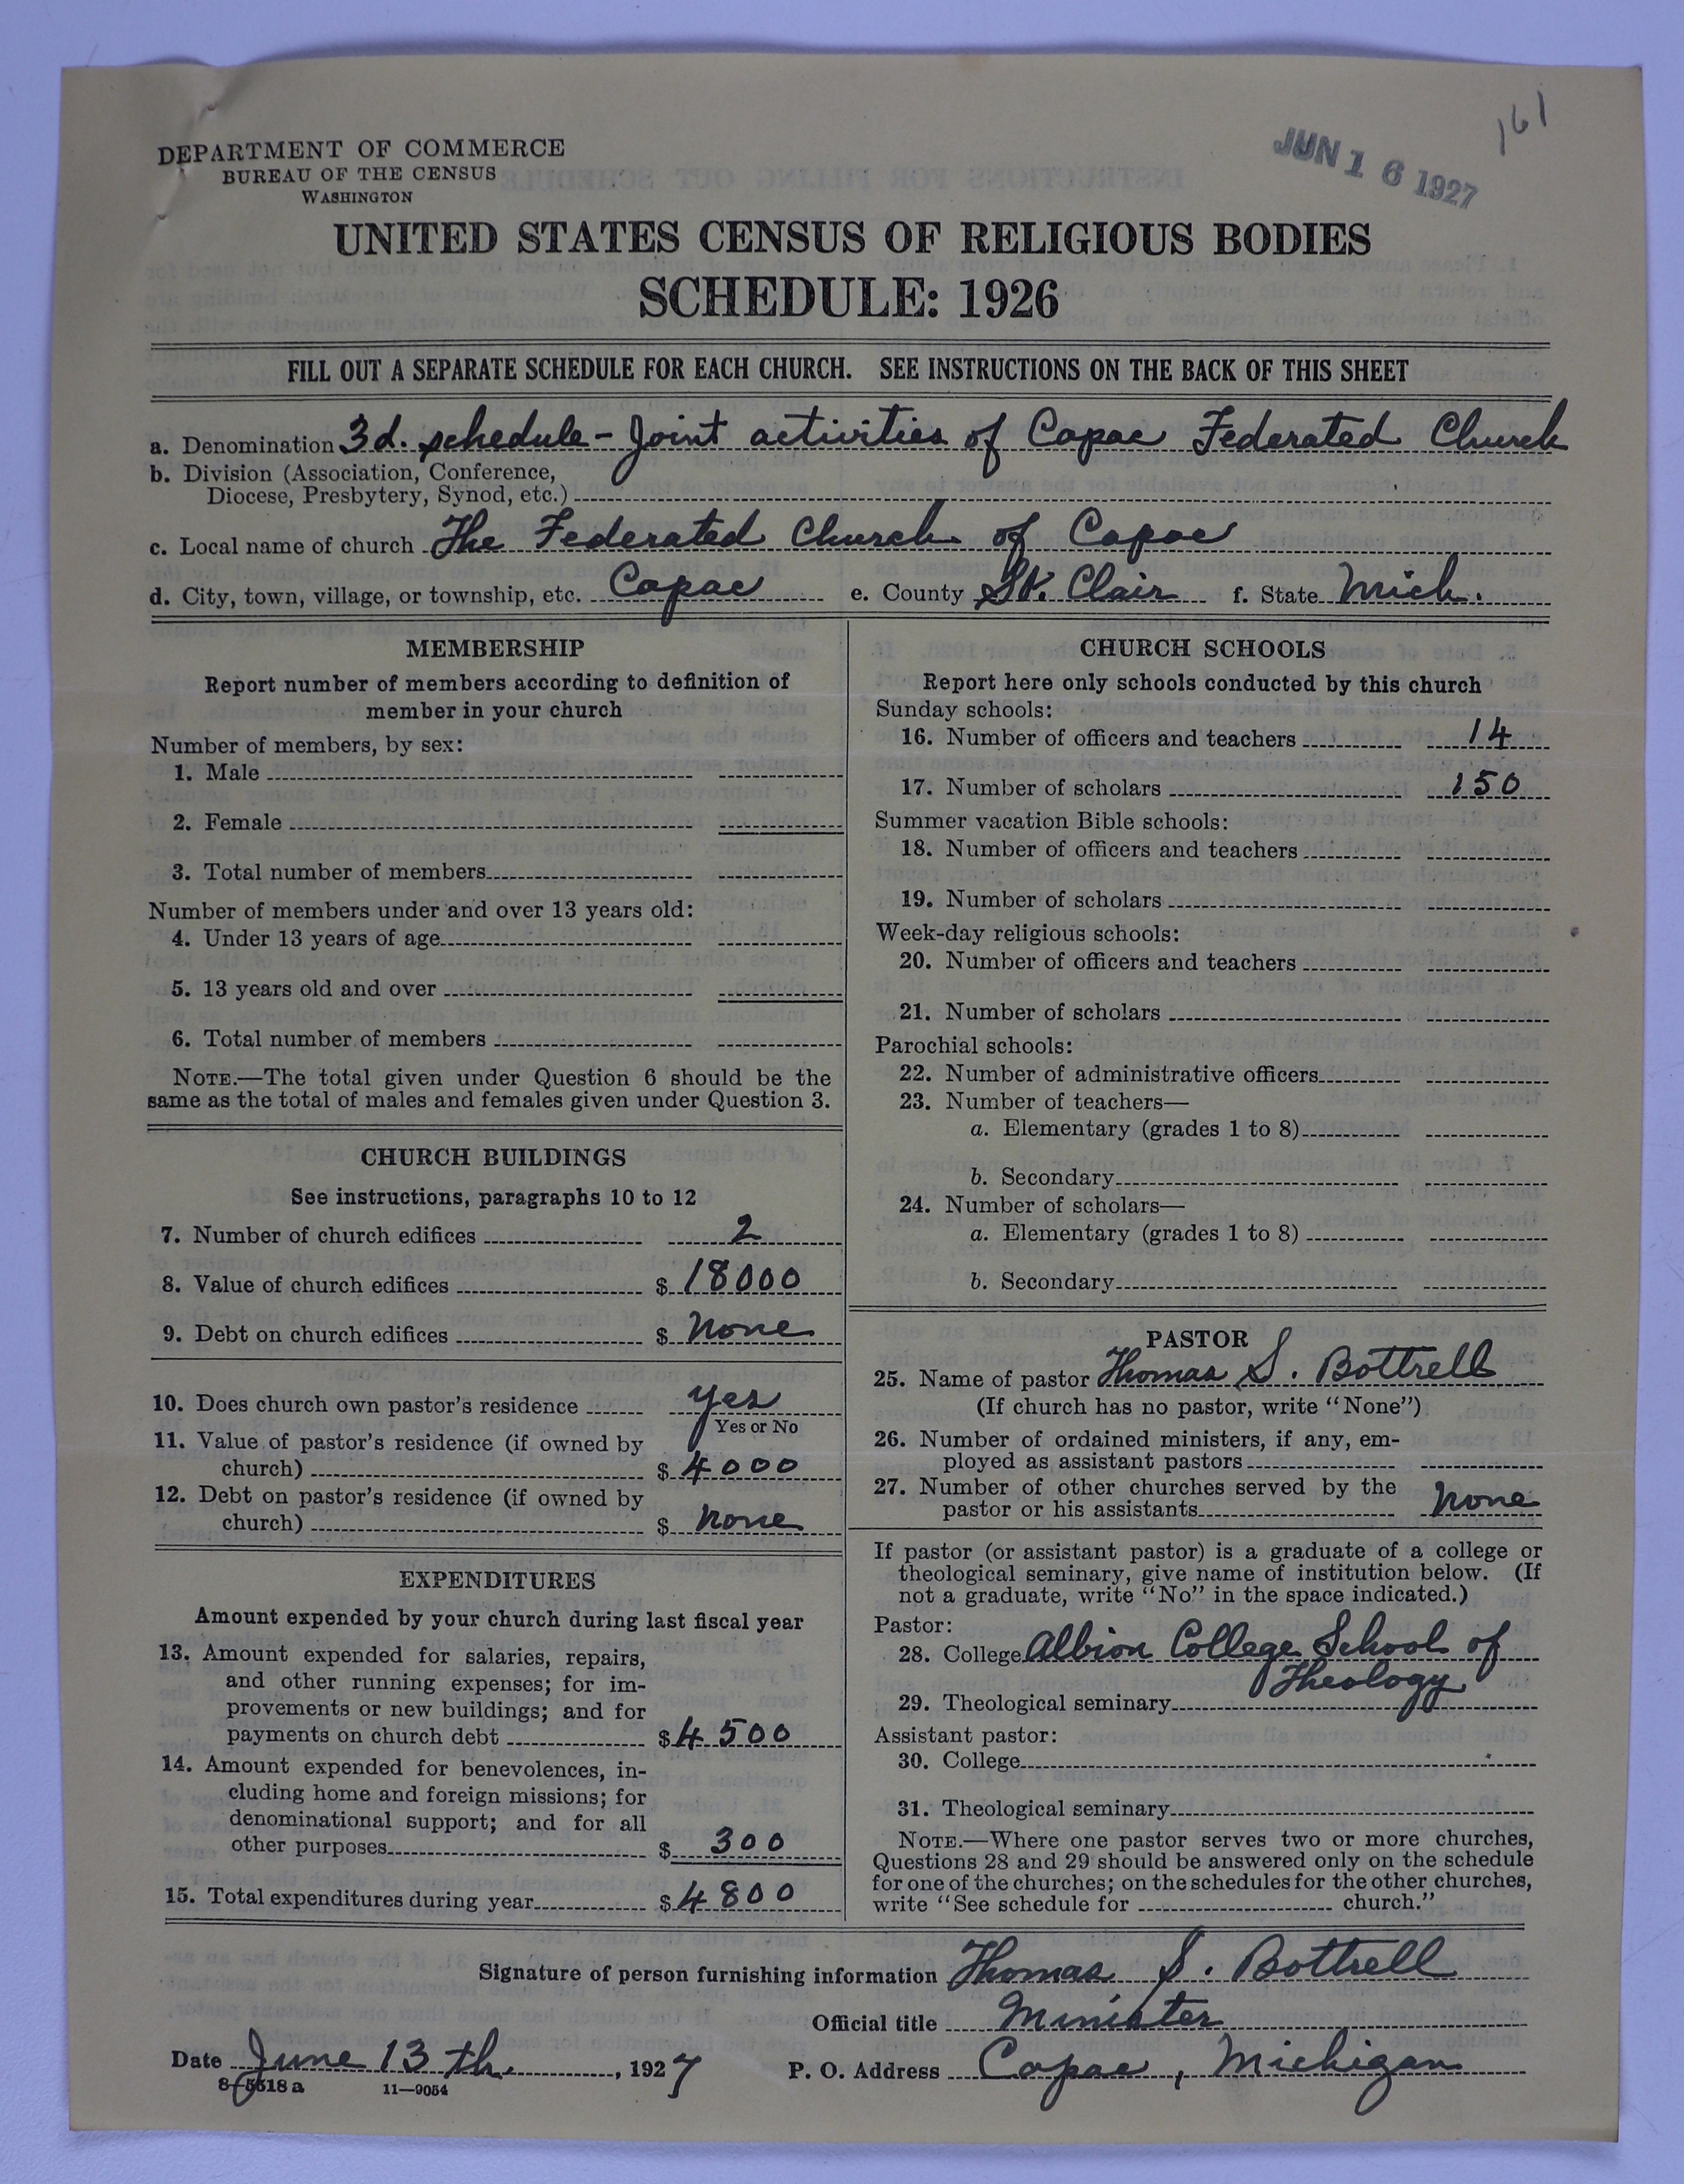 161
JUN 16 1927
DEPARTMENT OF COMMERCE
BUREAU OF THE CENSUS
WASHINGTON
UNITED STATES CENSUS OF RELIGIOUS BODIES
SCHEDULE: 1926
FILL OUT A SEPARATE SCHEDULE FOR EACH CHURCH. SEE INSTRUCTIONS ON THE BACK OF THIS SHEET
a. Denomination 3d. schedule - Joint activities of Capac Federated Church
b. Division (Association, Conference,
Diocese, Presbytery, Synod, etc.)
c. Local name of church The Federated Church of Capac
d. City, town, village, or township, etc. Capac e. County St. Clair f. State Mich.
MEMBERSHIP
Report number of members according to definition of
member in your church
Number of members, by sex:
1. Male
2. Female
3. Total number of members
Number of members under and over 13 years old:
4. Under 13 years of age
5. 13 years old and over
6. Total number of members
NOTE.—The total given under Question 6 should be the
same as the total of males and females given under Question 3.
CHURCH BUILDINGS
See instructions, paragraphs 10 to 12
7. Number of church edifices 2
8. Value of church edifices $ 18000
9. Debt on church edifices $ None
10. Does church own pastor's residence Yes
Yes or No
11. Value of pastor's residence (if owned by
church) $ 4000
12. Debt on pastor's residence (if owned by
church) $ None
EXPENDITURES
Amount expended by your church during last fiscal year
13. Amount expended for salaries, repairs,
and other running expenses; for im-
provements or new buildings; and for
payments on church debt $ 4500
14. Amount expended for benevolences, in-
cluding home and foreign missions; for
denominational support; and for all
other purposes $ 300
15. Total expenditures during year $ 4800
CHURCH SCHOOLS
Report here only schools conducted by this church
Sunday schools:
16. Number of officers and teachers 14
17. Number of scholars 150
Summer vacation Bible schools:
18. Number of officers and teachers
19. Number of scholars
Week-day religious schools:
20. Number of officers and teachers
21. Number of scholars
Parochial schools:
22. Number of administrative officers
23. Number of teachers—
a. Elementary (grades 1 to 8)
b. Secondary
24. Number of scholars—
a. Elementary (grades 1 to 8)
b. Secondary
PASTOR
25. Name of pastor Thomas S. Bottrell
(If church has no pastor, write "None")
26. Number of ordained ministers, if any, em-
ployed as assistant pastors
27. Number of other churches served by the
pastor or his assistants None
If pastor (or assistant pastor) is a graduate of a college or
theological seminary, give name of institution below. (If
not a graduate, write "No" in the space indicated.)
Pastor:
28. College Albion College School of
Theology
29. Theological seminary
Assistant pastor:
30. College
31. Theological seminary
NOTE.—Where one pastor serves two or more churches,
Questions 28 and 29 should be answered only on the schedule
for one of the churches; on the schedules for the other churches,
write "See schedule for church."
Signature of person furnishing information Thomas S. Bottrell
Official title Minister
Date June 13th, 1927 P. O. Address Capac, Michigan
8-5518 a 11—9054